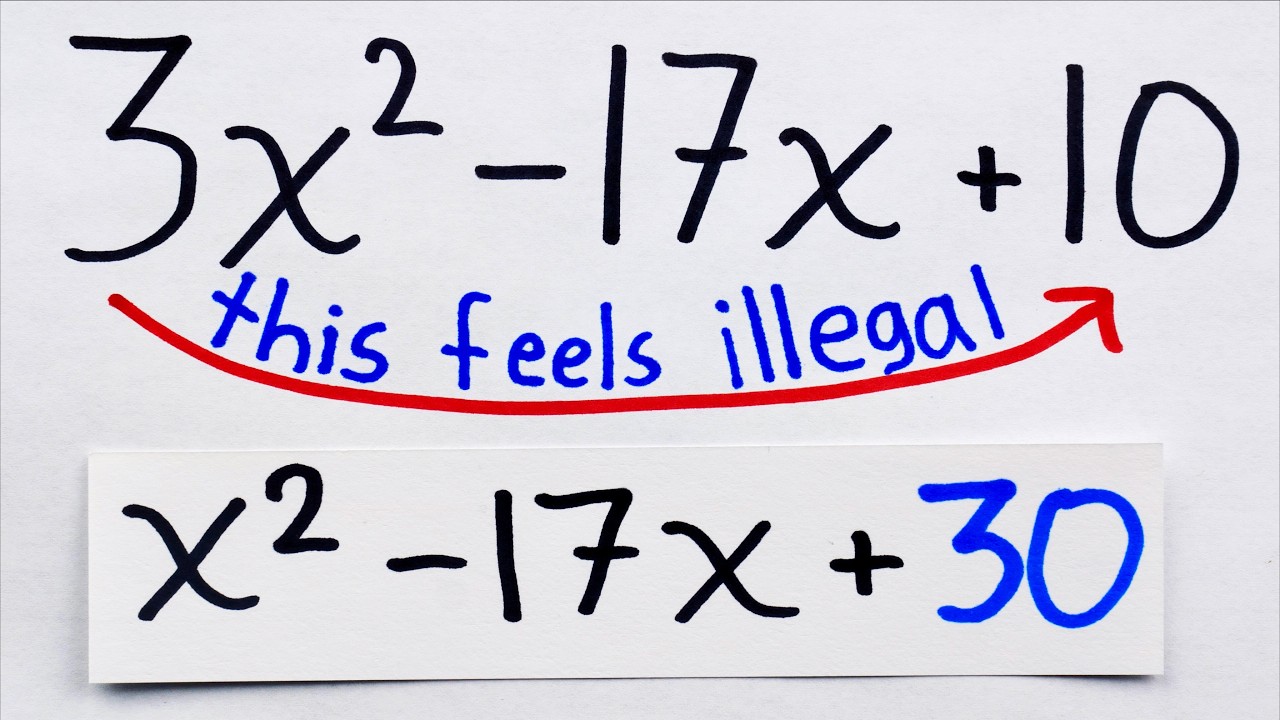 3x² - 17x + 10
this feels illegal
x² - 17x + 30